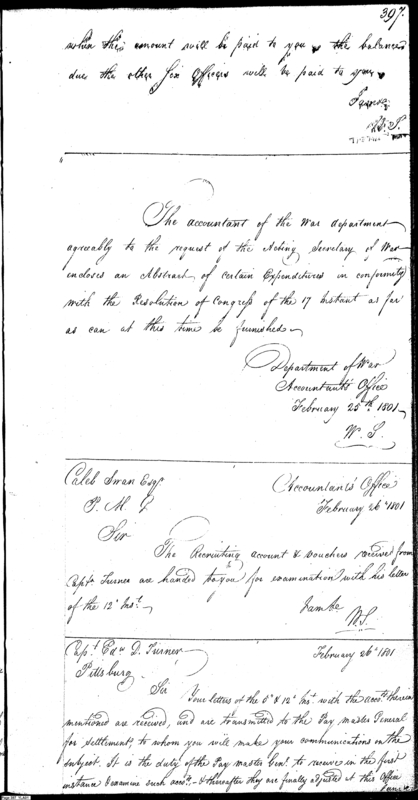 397.
when their amount will be paid to you & the balances
due the other Six Officers will be paid to you
W. S.
The accountant of the War department
agreeably to the request of the Acting Secretary of War
incloses an Abstract of certain Expenditures in conformity
with the Resolution of Congress of the 17 Instant as far
as can at this time be furnished
Department of War
Accountants Office
February 25th. 1801
W. S.
Caleb Swan Esqr Accountants' Office
P. M. G February 26th 1801
Sir
The Recruiting account & vouchers receive from
Captn Turner are handed to you for examination with his letter
of the 12th Inst.
I am &c
W S.
Capt. Edwd D. Turner February 26th 1801
Pittsburg
Sir Your letters of the & 12th Inst with the accots therein
mentioned are received, and are transmitted to the Pay master General
for settlement, to whom you will make your communications on the
subject. It is the duty of the Paymaster Genl. to receive in the first
instance & examine such accots. & thereafter they are finally adjusted at this Office